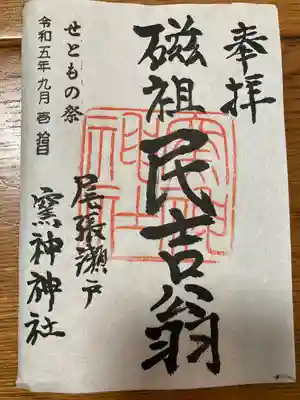 奉拝
磁祖民吉翁
窯神神社
尾張瀬戸
窯神神社
せともの祭
令和五年九月壱拾日